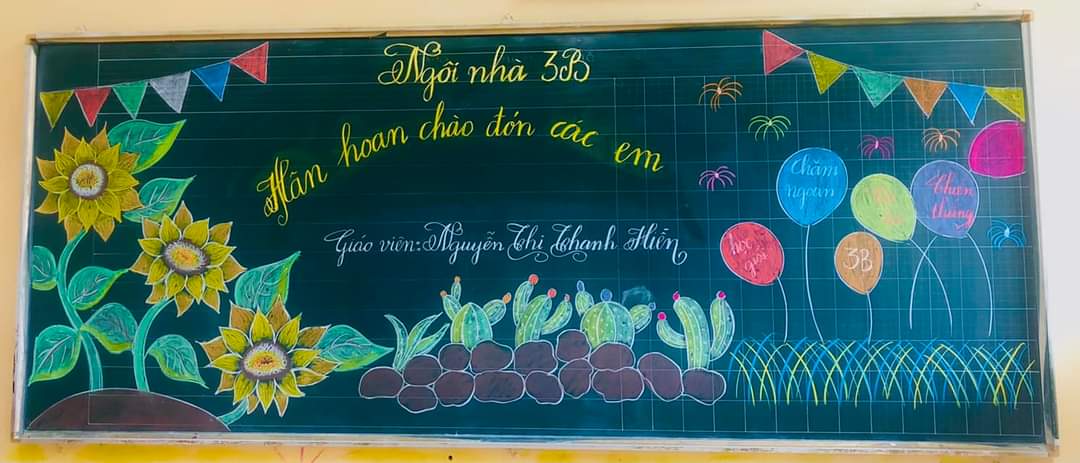 Ngôi nhà 3B
Hân hoan chào đón các em
Giáo viên: Nguyễn Thị Thanh Hiền
Chăm
ngoan
học
giỏi
3B